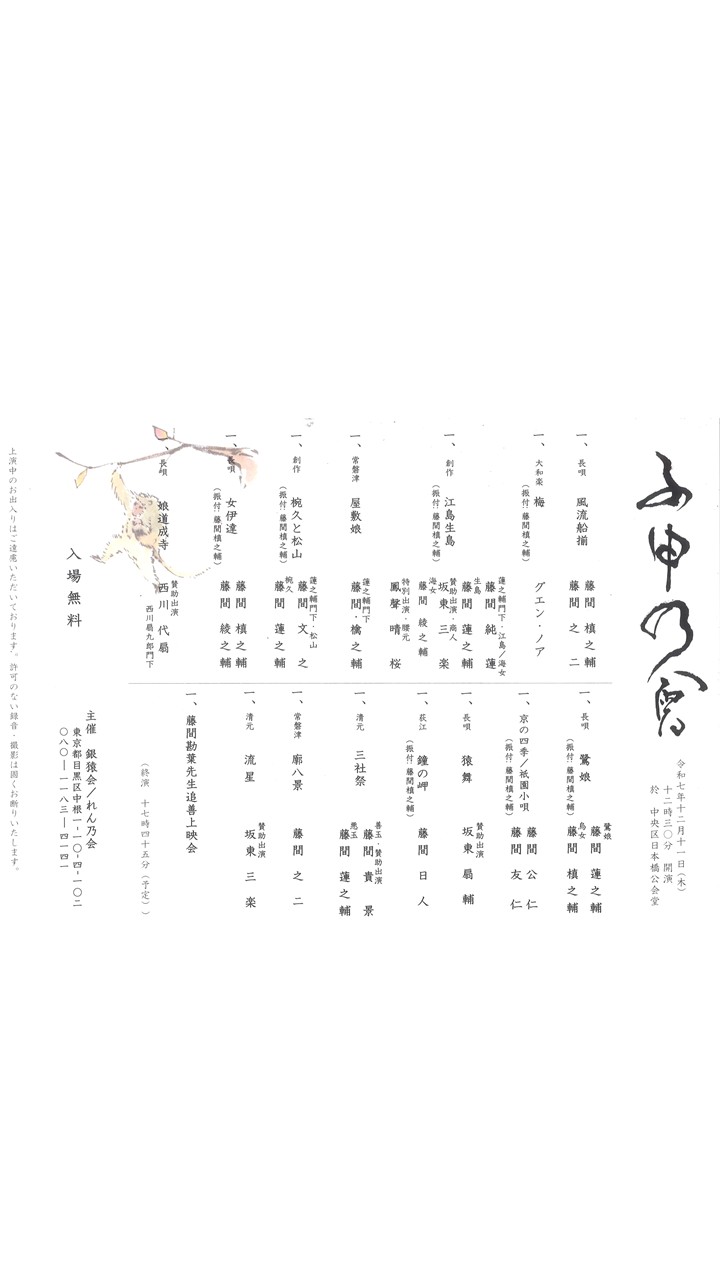 ふ申乃會
令和七年十二月十一日(木)
十二時三〇分 開演
於 中央区日本橋公会堂
一、長唄 風流船揃
藤間 槙之輔
藤間 之二
一、大和楽 梅
(振付:藤間槙之輔)
グエン・ノア
一、創作 江島生島
(振付:藤間槙之輔)
蓮之輔門下・江島/海女
藤間 純蓮
生島
藤間 蓮之輔
賛助出演・商人
坂東 三楽
海女
藤間 綾之輔
特別出演・腰元
鳳聲 晴桜
一、常磐津 屋敷娘
蓮之輔門下
藤間・檎之輔
一、創作 椀久と松山
(振付:藤間槙之輔)
蓮之輔門下・松山
藤間 文之
椀久
藤間 蓮之輔
一、長唄 女伊達
(振付:藤間槙之輔)
藤間 槙之輔
藤間 綾之輔
一、長唄 娘道成寺
賛助出演
西川 代扇
西川扇九郎門下
一、長唄 鷺娘
(振付:藤間槙之輔)
鷺娘
藤間 蓮之輔
烏女
藤間 槙之輔
一、京の四季/祇園小唄
(振付:藤間槙之輔)
藤間 公仁
藤間 友仁
一、長唄 猿舞
賛助出演
坂東 扇輔
一、荻江 鐘の岬
(振付:藤間槙之輔)
藤間 日人
一、清元 三社祭
善玉・賛助出演
藤間 貴景
悪玉
藤間 蓮之輔
一、常磐津 廓八景
藤間 之二
一、清元 流星
賛助出演
坂東 三楽
一、藤間勘葉先生追善上映会
(終演 十七時四十五分(予定))
入場無料
主催 銀猿会/れん乃会
東京都目黒区中根一-一〇-四-一〇二
〇八〇―一一八三―四一四一
上演中のお出入りはご遠慮いただいております。許可のない録音・撮影は固くお断りいたします。